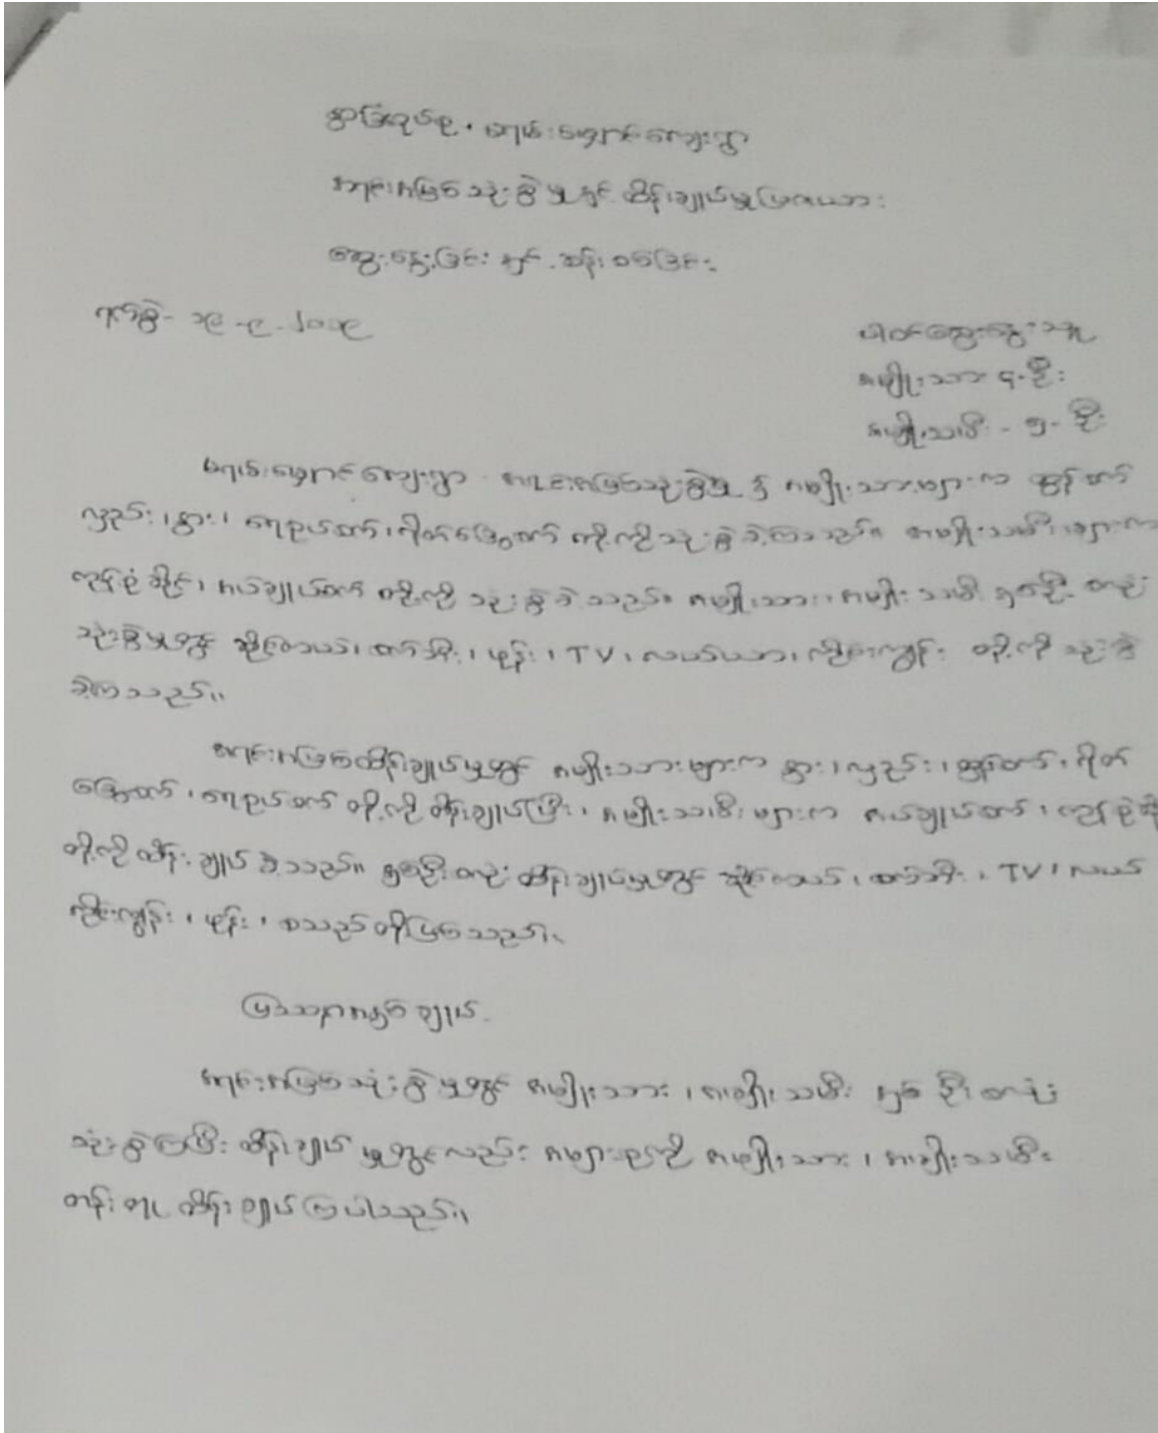 ရွာခြံအုပ်စု၊ မရမ်းချောင်ကျေးရွာ
အရင်းအမြစ်သုံးစွဲမှုနှင့် ထိန်းချုပ်မှုပြဇယား
ဆွေးနွေးခြင်း နှင့် ဆန်းစစ်ခြင်း
ရက်စွဲ- ၁၉-၉-၂၀၁၉
ပါဝင်ဆွေးနွေးသူ
အမျိုးသား ၄-ဦး
အမျိုးသမီး - ၅- ဦး
ကျေးရွာ အရင်းအမြစ်သုံးစွဲမှု ၌ အမျိုးသားများက ထွန်စက်
လှည်း၊ နွား၊ ရေစုပ်စက်၊ ရိတ်ခြွေစက် တို့ကို သုံးစွဲခဲ့ကြသည်။ အမျိုးသမီးများက
ကုန်စုံဆိုင်၊ အပ်ချုပ်စက် တို့ကို သုံးစွဲခဲ့သည်။ အမျိုးသား၊ အမျိုးသမီး နှစ်ဦးစလုံး
သုံးစွဲမှုတွင် ဆိုင်ကယ်၊ စက်ဘီး၊ ဖုန်း၊ TV၊ လယ်ယာ၊ ကိုင်းကျွန်း တို့ကို သုံးစွဲ
ခဲ့ကြသည်။
အရင်းအမြစ်ထိန်းချုပ်မှုတွင် အမျိုးသားများက နွား၊ လှည်း၊ ထွန်စက်၊ ရိတ်
ခြွေစက်၊ ရေစုပ်စက် တို့ကို ထိန်းချုပ်ပြီး၊ အမျိုးသမီးများက အပ်ချုပ်စက်၊ ကုန်စုံဆို
တို့ကို ထိန်းချုပ်ခဲ့သည်။ နှစ်ဦးစလုံး ထိန်းချုပ်မှုတွင် ဆိုင်ကယ်၊ စက်ဘီး၊ TV၊ လယ်
ကိုင်းကျွန်း၊ ဖုန်း၊ စသည်တို့ဖြစ်သည်။
ပြဿနာအနှစ်ချုပ်
အရင်းအမြစ်သုံးစွဲမှုတွင် အမျိုးသား၊ အမျိုးသမီး နှစ်ဦးစလုံး
သုံးစွဲကြပြီး ထိန်းချုပ်မှုတွင်လည်း အများစုကို အမျိုးသား၊ အမျိုးသမီး
တန်းတူ ထိန်းချုပ်ကြပါသည်။